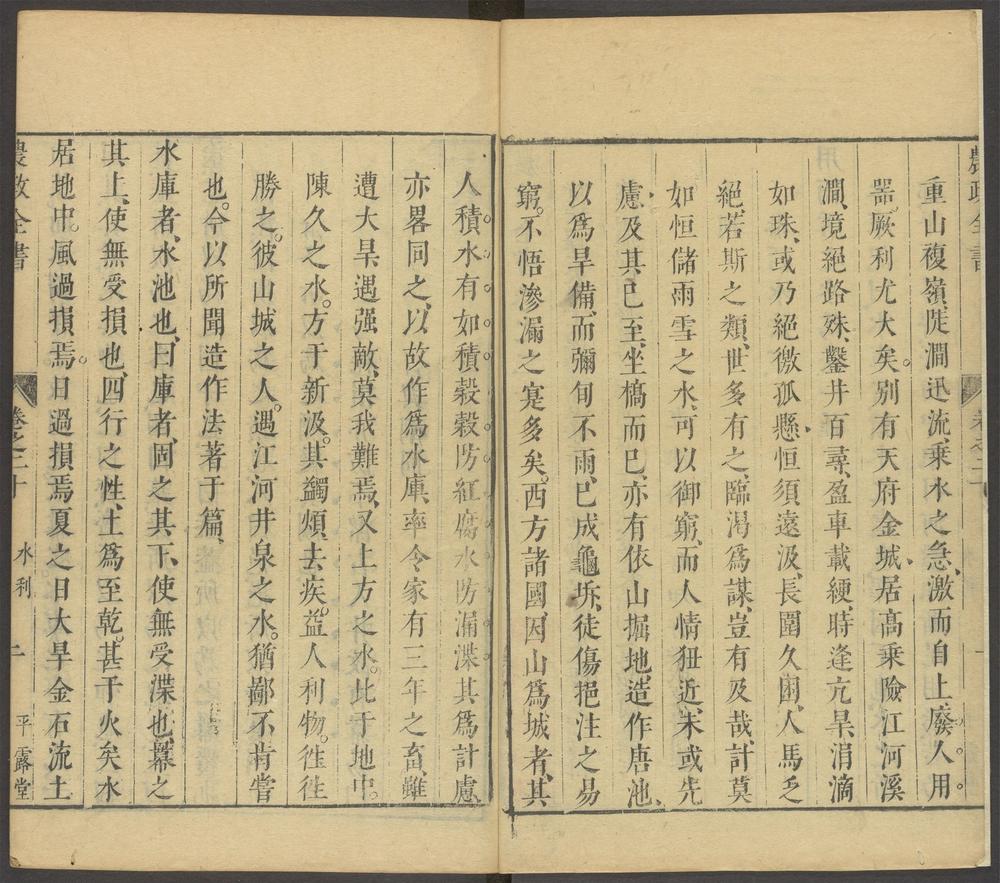 農政全書
卷之二十
重山複嶺陡澗迅流乗水之急、激而自上廢人。用。
器。厥利尤大矣。别有天府金城、居高乗險江河溪
澗、境絕路殊、鑿井百尋、盈車載綆、時逢亢旱、涓滴
如珠、或乃絕徼孤懸、恒須遠汲、長圍久困、人馬乏
絕、若斯之類、世多有之、臨渴爲謀、豈有及哉、計莫
如恒儲雨雪之水、可以御窮、而人情狃近、未或先
慮、及其已至、坐槁而已、亦有依山掘地、造作唐池、
以爲旱備、而彌旬不雨、已成龜坼、徒傷挹注之易
窮。不悟滲漏之寔多矣。西方諸國、因山爲城者、其
人。積。水。有。如。積。穀。穀。防。紅。腐。水。防。漏。渫。其爲計慮、
亦畧同之、以故作爲水庫、率令家有三年之畜、雖
遭大旱、遇强敵、莫我難焉、又上方之水。比于地中。
陳久之水。方于新汲。其蠲煩、去疾。益人利物。徃徃
勝之。彼山城之人。遇江河井泉之水。猶鄙不肯嘗
也。今以所聞造作法著于篇、
水庫者、水池也、曰庫者、固之其下、使無受渫也、羃之
其上、使無受損也、四行之性、土爲至乾。甚于火矣水
居地中。風過損焉。日過損焉夏之日大旱金石流土
農政全書
卷之二十
水利
二
平露堂